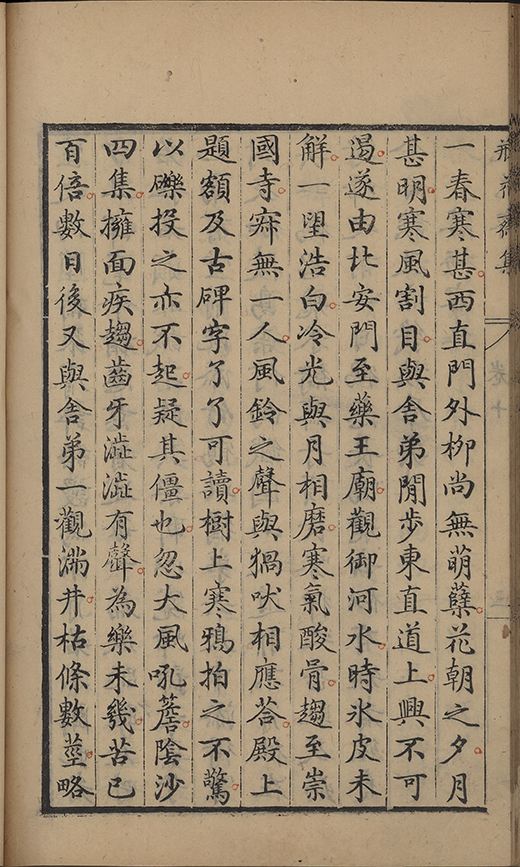 瓶花齋集
卷十
一春寒甚西直門外柳尚無萌蘖花朝之夕月
甚明寒風割目與舍弟閒步東直道上興不可
遏遂由北安門至藥王廟觀御河水時氷皮未
解一望浩白冷光與月相磨寒氣酸骨趨至崇
國寺寂無一人風鈴之聲與猧吠相應荅殿上
題額及古碑字了了可讀樹上寒鴉拍之不驚
以礫投之亦不起疑其僵也忽大風吼簷陰沙
四集擁面疾趨齒牙澁澁有聲為樂未幾苦已
百倍數日後又與舍弟一觀滿井枯條數莖略